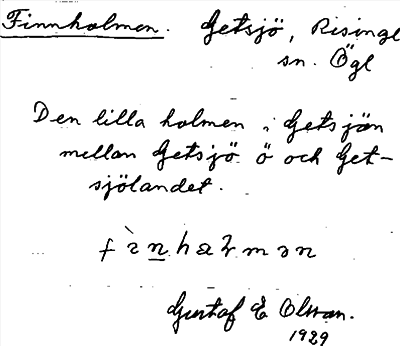 Finnholmen. Getsjö, Risinge
sn. Ögl
Den lilla holmen i Getsjön
mellan Getsjö ö och Get-
sjölandet.
Gustaf E Olsson.
1929